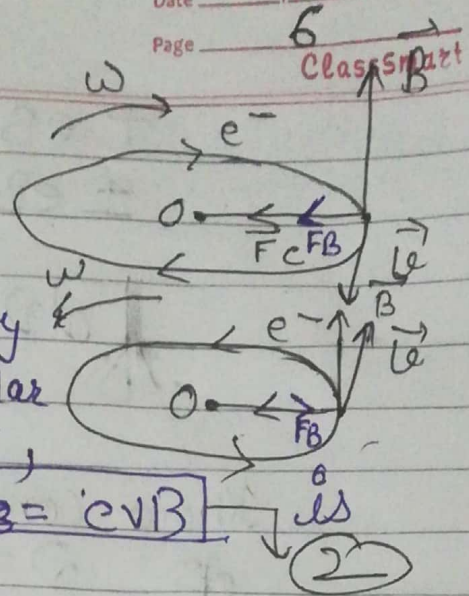 Date
Page 6
Classsmart
ω B
e⁻
O F e FB
v
ω B
y e⁻ v
lar O
FB
3 = evB is
2